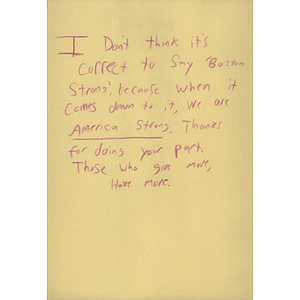 I Don't think it's
correct to say 'Boston
Strong', because when it
comes down to it, we are
America Strong. Thanks
for doing your part.
Those who give more,
Have more.